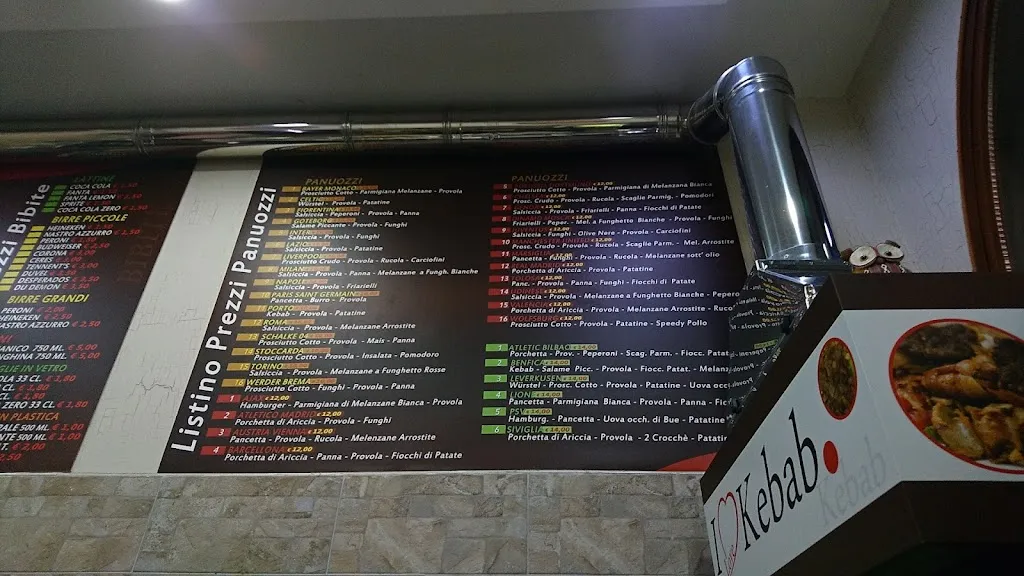 zzi Bibite
LATTINE
COCA COLA
FANTA
FANTA LEMON
SPRITE
COCA COLA ZERO
BIRRE PICCOLE
HEINEKEN
NASTRO AZZURRO € 2,50
PERONI
BUDWEISER
CORONA
CERES
TENNENT'S
DUVEL
DESPERADOS
DU DEMON
BIRRE GRANDI
PERONI
HEINEKEN € 2,50
NASTRO AZZURRO € 2,50
750 ML.
750 ML. € 5,00
GLIE IN VETRO
COLA 33 CL.
CL. € 1,80
CL. € 1,80
ZERO 33 CL. € 1,80
IN PLASTICA
500 ML. € 1,00
500 ML. € 1,00
Listino Prezzi Panuozzi
PANUOZZI
BAYER MONACO
Prosciutto Cotto - Parmigiana Melanzane - Provola
CELTIC
Würstel - Provola - Patatine
FIORENTINA
Salsiccia - Peperoni - Provola - Panna
GOTEBORG
Salame Piccante - Provola - Funghi
INTER
Salsiccia - Provola - Funghi
LAZIO
Salsiccia - Provola - Patatine
LIVERPOOL
Prosciutto Crudo - Provola - Rucola - Carciofini
MILAN
Salsiccia - Provola - Panna - Melanzane a Fungh. Bianche
NAPOLI
Salsiccia - Provola - Friarielli
10 PARIS SAINT GERMAIN
Pancetta - Burro - Provola
11 PORTO
Kebab - Provola - Patatine
12 ROMA
Salsiccia - Provola - Melanzane Arrostite
13 SCHALKE
Prosciutto Cotto - Provola - Mais - Panna
14 STOCCARDA
Prosciutto Cotto - Provola - Insalata - Pomodoro
15 TORINO
Salsiccia - Provola - Melanzane a Funghetto Rosse
16 WERDER BREMA
Prosciutto Cotto - Funghi - Provola - Panna
1 AJAX € 12,00
Hamburger - Parmigiana di Melanzane Bianca - Provola
2 ATLETICO MADRID € 12,00
Porchetta di Ariccia - Provola - Funghi
3 AUSTRIA VIENNA € 12,00
Pancetta - Provola - Rucola - Melenzane Arrostite
4 BARCELLONA € 12,00
Porchetta di Ariccia - Panna - Provola - Fiocchi di Patate
PANUOZZI
5
Prosciutto Cotto - Provola - Parmigiana di Melanzana Bianca
6
Prosc. Crudo - Provola - Rucola - Scaglie Parmig. - Pomodori
7
Salsiccia - Provola - Friarielli - Panna - Fiocchi di Patate
8
Friarielli - Peper. - Mel. a Funghetto Bianche - Provola - Funghi
9 JUVENTUS
Salsiccia - Funghi - Olive Nere - Provola - Carciofini
10 MANCHESTER UNITED € 12,00
Prosc. Crudo - Provola - Rucola - Scaglie Parm. - Mel. Arrostite
11 MARSIGLIA
Pancetta - Funghi - Provola - Rucola - Melanzane sott' olio
12 REAL MADRID € 12,00
Porchetta di Ariccia - Provola - Patatine
13 TOLOSA
Panc. - Provola - Panna - Funghi - Fiocchi di Patate
14 UDINESE
Salsiccia - Provola - Melanzane a Funghetto Bianche - Pepero
15 VALENCIA
Porchetta di Ariccia - Provola - Melanzane Arrostite - Ruco
16 WOLFSBURG
Prosciutto Cotto - Provola - Patatine - Speedy Pollo
1 ATLETIC BILBAO € 14,00
Porchetta - Prov. - Peperoni - Scag. Parm. - Fiocc. Patat
2 BENFICA € 14,00
Kebab - Salame Picc. - Provola - Fiocc. Patat. - Melanz
3 LEVERKUSEN € 14,00
Würstel - Prosc. Cotto - Provola - Patatine - Uova occ
4 LIONE € 14,00
Pancetta - Parmigiana Bianca - Provola - Panna - Fi
5 PSV € 14,00
Hamburg. - Pancetta - Uova occh. di Bue - Patatine
6 SIVIGLIA € 14,00
Porchetta di Ariccia - Provola - 2 Crocchè - Patatin
I Love Kebab.
Kebab